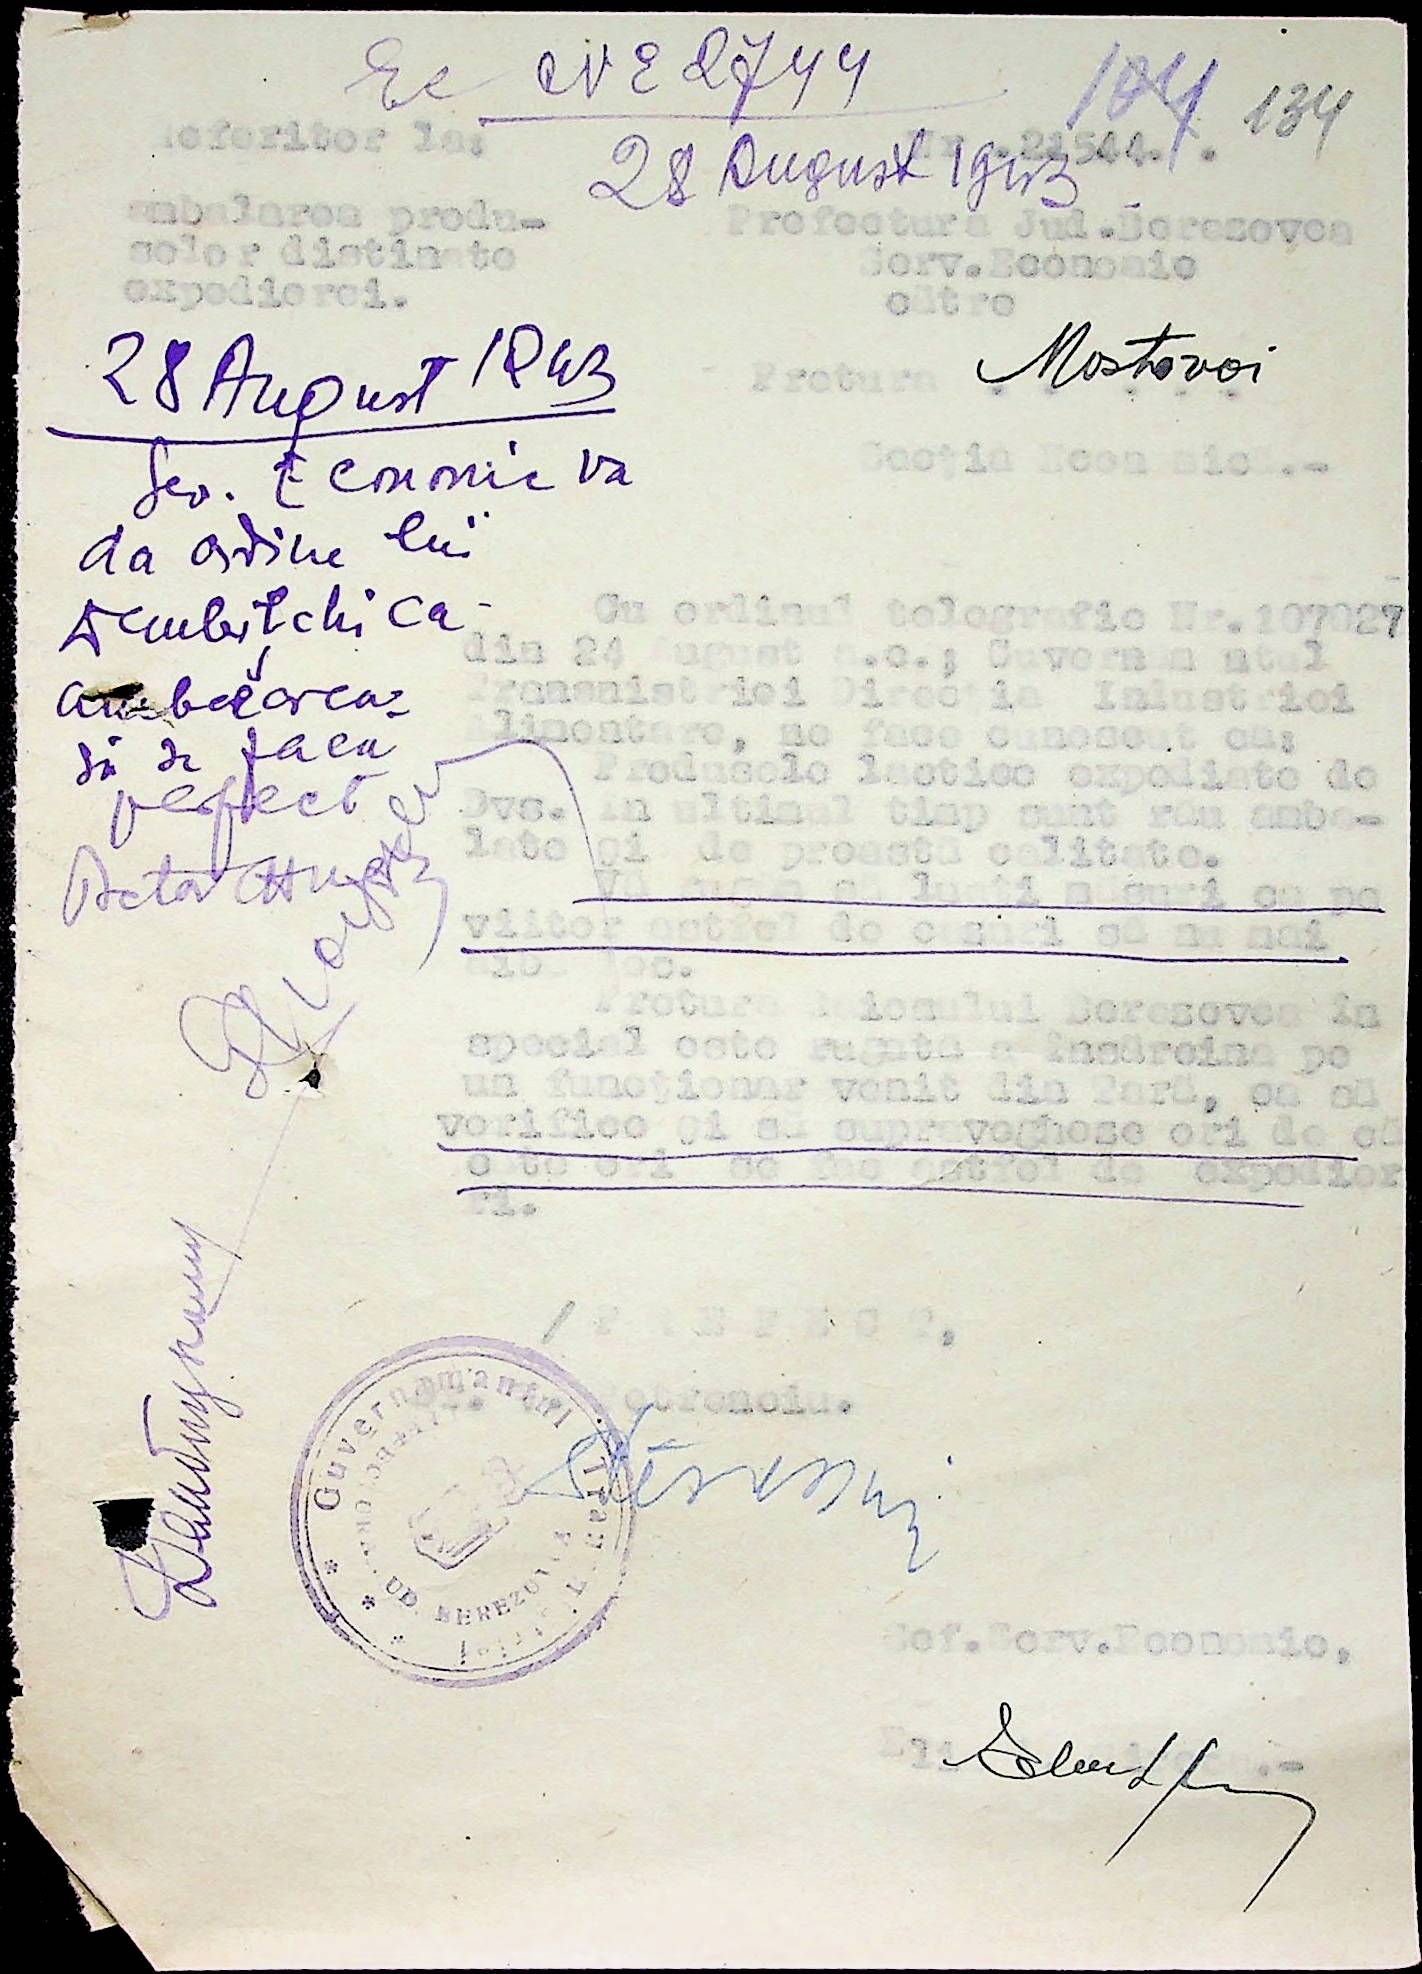 Ec No 2744
28 August 1943
104 134
Referitor la:
Nr. 21544.
ambalarea produ-
selor distinate
expedierei.
Prefectura Jud.Berezovca
Serv.Economic
către
Pretura Mostovoi
Secţia Economică.-
28 August 1943
Serv. Economic va
da ordine lui
ca
ambalarea
să se facă
perfect
Cu ordinul telegrafic Nr.107027
din 24 August a.c.; Guvernăm ntul
Transnistriei Direc ia Industriei
Alimentare, ne face cunoscut că:
Produsele lactice expediate de
Dvs. în ultimul timp sunt rău amba-
late şi de proastă calitate.
Vă rugăm să luaţi măsuri ca pe
viitor astfel de cazuri să nu mai
aibă loc.
Pretura Raionului Berezovca în
special este rugată a însărcina pe
un funcţionar venit din Ţară, ca să
verifice şi să supravegheze ori de câ
e te ori se fac astfel de expedier
ri.
/ P R E F E C T,
Guvernamantul Trans
PREFECTURA
JUD. BEREZOVCA
Şef.Serv.Economic,